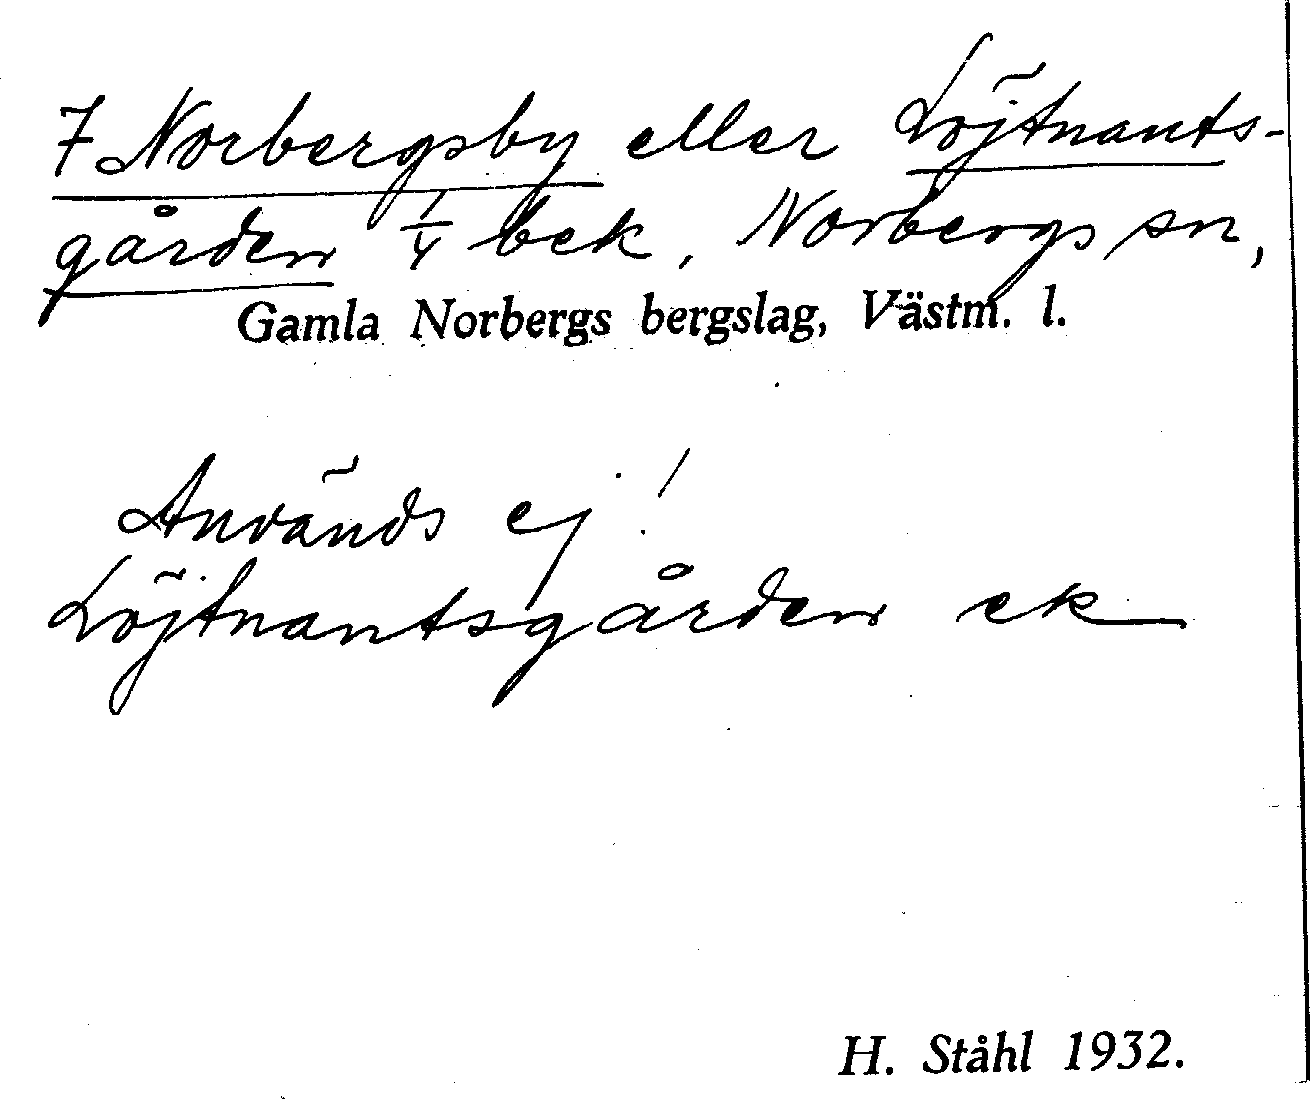 7 Norbergsby eller Löjtnants-
gården 1/4 bek, Norbergs sn,
Gamla Norbergs bergslag, Västm. l.
Används ej!
Löjtnantsgården ek
H. Ståhl 1932.